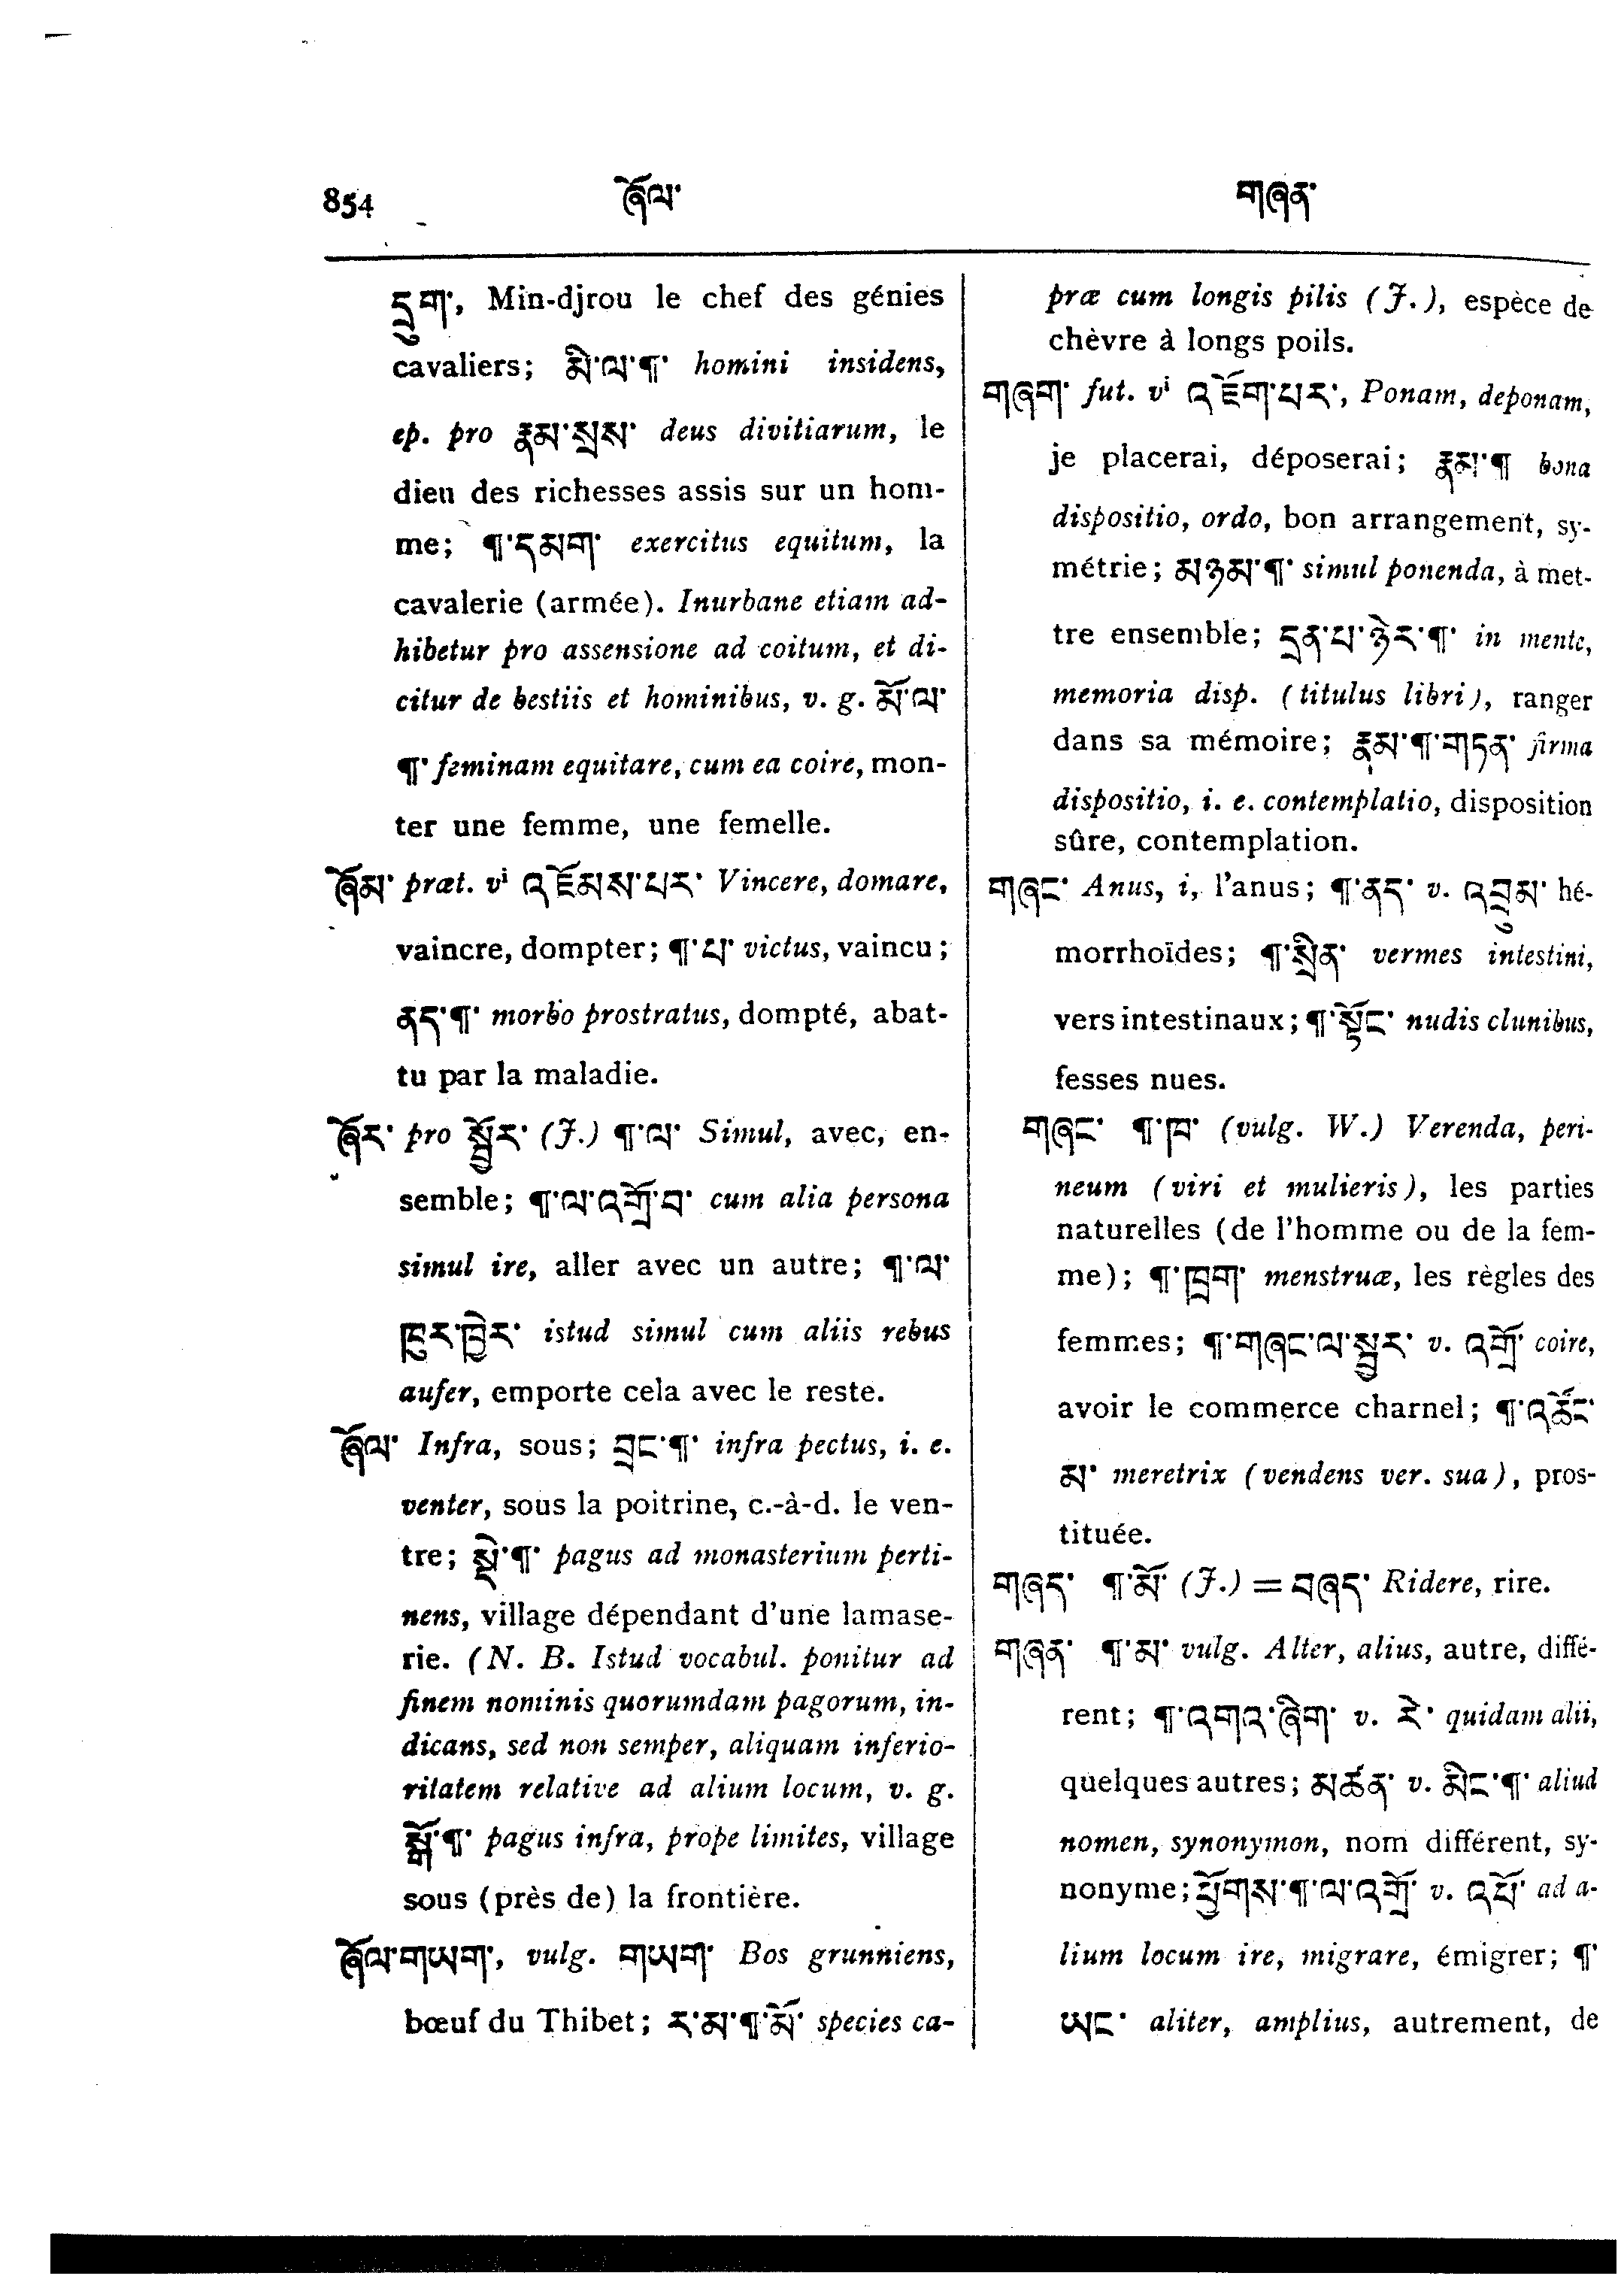 854 ཞོལ་ གཞན་
དྲུག་, Min-djrou le chef des génies
cavaliers; མི་ལ་¶་ homini insidens,
ep. pro རྣམ་སྲས་ deus divitiarum, le
dieu des richesses assis sur un hom-
me; ¶་དམག་ exercitus equitum, la
cavalerie (armée). Inurbane etiam ad-
hibetur pro assensione ad coitum, et di-
citur de bestiis et hominibus, v. g. མོ་ལ་
¶་ feminam equitare, cum ea coire, mon-
ter une femme, une femelle.
ཞོམ་ præt. vⁱ འཇོམས་པར་ Vincere, domare,
vaincre, dompter; ¶་པ་ victus, vaincu;
ནད་¶་ morbo prostratus, dompté, abat-
tu par la maladie.
ཞོར་ pro སྦྱོར་ (J.) ¶་ལ་ Simul, avec, en-
semble; ¶་ལ་འགྲོ་བ་ cum alia persona
simul ire, aller avec un autre; ¶་ལ་
ཁུར་ཁྱེར་ istud simul cum aliis rebus
aufer, emporte cela avec le reste.
ཞོལ་ Infra, sous; བྲང་¶་ infra pectus, i. e.
venter, sous la poitrine, c.-à-d. le ven-
tre; སྡེ་¶་ pagus ad monasterium perti-
nens, village dépendant d'une lamase-
rie. (N. B. Istud vocabul. ponitur ad
finem nominis quorumdam pagorum, in-
dicans, sed non semper, aliquam inferio-
ritatem relative ad alium locum, v. g.
སྒོ་¶་ pagus infra, prope limites, village
sous (près de) la frontière.
ཞོལ་གཡག་, vulg. གཡག་ Bos grunniens,
bœuf du Thibet; ར་མ་¶་མོ་ species ca-
præ cum longis pilis (J.), espèce de
chèvre à longs poils.
གཞག་ fut. vⁱ འཇོག་པར་, Ponam, deponam,
je placerai, déposerai; རྣམ་¶ bona
dispositio, ordo, bon arrangement, sy-
métrie; མཉམ་¶་ simul ponenda, à met-
tre ensemble; དྲན་པ་ཉེར་¶་ in mente,
memoria disp. (titulus libri), ranger
dans sa mémoire; རྣམ་¶་གཏན་ firma
dispositio, i. e. contemplatio, disposition
sûre, contemplation.
གཞང་ Anus, i, l'anus; ¶་ནད་ v. འབྲུམ་ hé-
morrhoïdes; ¶་སྲིན་ vermes intestini,
vers intestinaux; ¶་སྟོང་ nudis clunibus,
fesses nues.
གཞང་ ¶་ཁ་ (vulg. W.) Verenda, peri-
neum (viri et mulieris), les parties
naturelles (de l'homme ou de la fem-
me); ¶་ཁྲག་ menstruæ, les règles des
femmes; ¶་གཞང་ལ་སྦྱར་ v. འགྲོ་ coire,
avoir le commerce charnel; ¶་འཚོང་
མ་ meretrix (vendens ver. sua), pros-
tituée.
གཞད་ ¶་མོ་ (J.) = བཞད་ Ridere, rire.
གཞན་ ¶་མ་ vulg. Alter, alius, autre, diffé-
rent; ¶་འགའ་ཞིག་ v. རེ་ quidam alii,
quelques autres; མཚན་ v. མིང་¶་ aliud
nomen, synonymon, nom différent, sy-
nonyme; ཕྱོགས་¶་ལ་འགྲོ་ v. འཕོ་ ad a-
lium locum ire, migrare, émigrer; ¶་
ཡང་ aliter, amplius, autrement, de